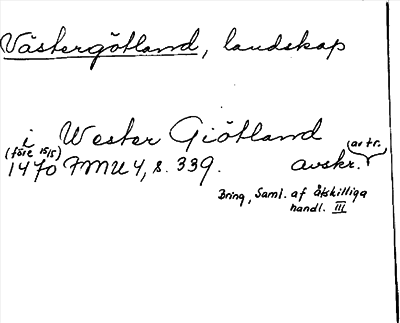 Västergötland, landskap
i Wester Giötland
(före 1515) (avtr.
1470 FMU 4, s. 339. avskr.
Bring, Saml. af åtskilliga
handl. III